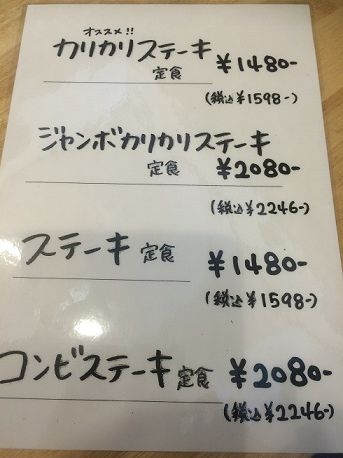 オススメ!!
カリカリステーキ
定食 ¥1480-
(税込¥1598-)
ジャンボカリカリステーキ
定食 ¥2080-
(税込¥2246-)
ステーキ 定食 ¥1480-
(税込¥1598-)
コンビステーキ定食 ¥2080-
(税込¥2246-)